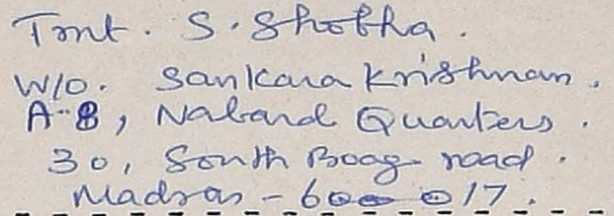 Tmt. S. Shobha.
W/o. Sankara Krishnan,
A-8, Nabard Quarters.
30, South Boag road.
Madras - 600017.